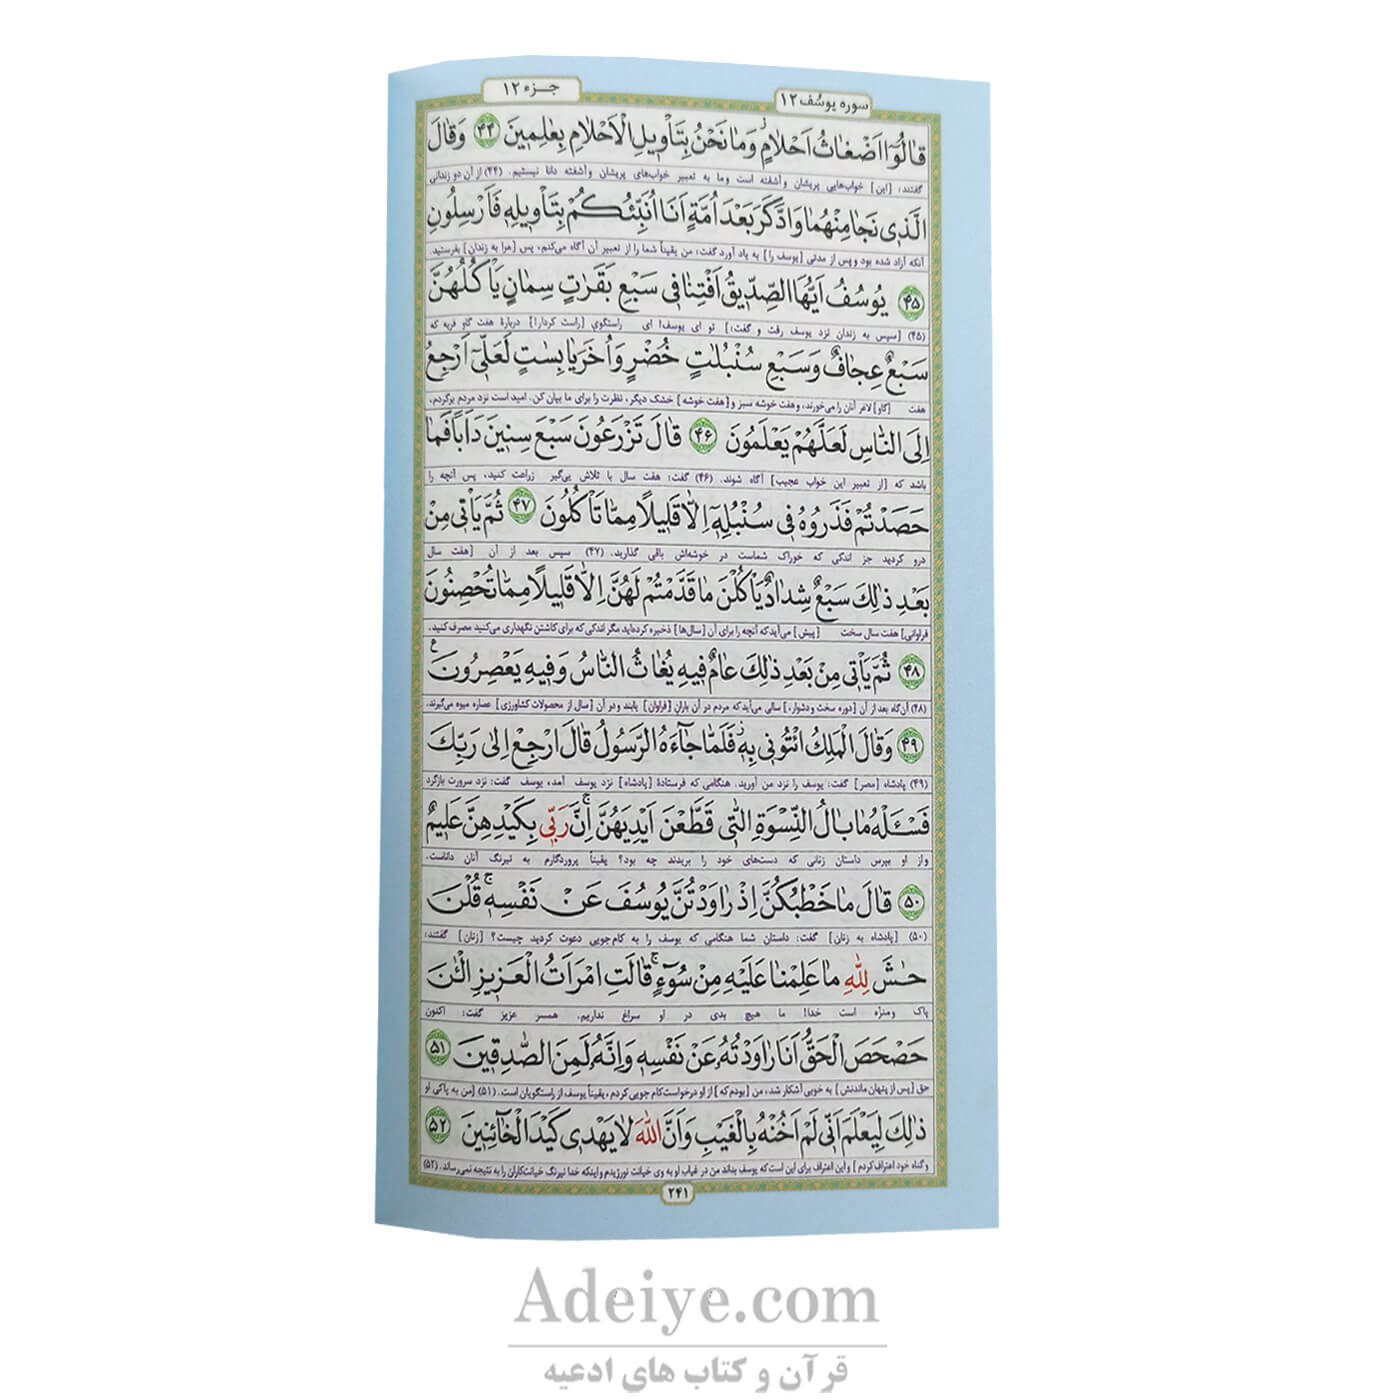 سوره یوسف ۱۲
جزء ۱۲
قالُوٓا اَضْغاثُ اَحْلامٍ وَما نَحْنُ بِتَأْويلِ الْاَحْلامِ بِعٰلِمينَ ۴۴ وَقالَ
گفتند: [این] خواب‌هایی پریشان و آشفته است و ما به تعبیر خواب‌های پریشان و آشفته دانا نیستیم. (۴۴) از آن دو زندانی
الَّذي نَجا مِنْهُما وَادَّكَرَ بَعْدَ اُمَّةٍ اَنَا اُنَبِّئُكُمْ بِتَأْويلِهٖ فَاَرْسِلُونِ
آنکه آزاد شده بود و پس از مدتی [یوسف را] به یاد آورد گفت: من یقیناً شما را از تعبیر آن آگاه می‌کنم، پس [مرا به زندان] بفرستید.
۴۵ يُوسُفُ اَيُّهَا الصِّدّيقُ اَفْتِنا في سَبْعِ بَقَرٰتٍ سِمانٍ يَأْكُلُهُنَّ
(۴۵) [سپس به زندان نزد یوسف رفت و گفت:] تو ای یوسف! ای راستگوی [راست کردار!] دربارهٔ هفت گاو فربه که
سَبْعٌ عِجافٌ وَسَبْعِ سُنْبُلٰتٍ خُضْرٍ وَاُخَرَ يابِسٰتٍ لَعَلّيٓ اَرْجِعُ
هفت [گاو] لاغر آنان را می‌خورند، و هفت خوشه سبز و [هفت خوشه] خشک دیگر، نظرت را برای ما بیان کن. امید است نزد مردم برگردم،
اِلَى النّاسِ لَعَلَّهُمْ يَعْلَمُونَ ۴۶ قالَ تَزْرَعُونَ سَبْعَ سِنينَ دَاَبًا فَما
باشد که [از تعبیر این خواب عجیب] آگاه شوند. (۴۶) گفت: هفت سال با تلاش پی‌گیر زراعت کنید، پس آنچه را
حَصَدْتُمْ فَذَرُوهُ في سُنْبُلِهٖٓ اِلّا قَليلًا مِمّا تَأْكُلُونَ ۴۷ ثُمَّ يَأْتي مِنْ
درو کردید جز اندکی که خوراک شماست در خوشه‌اش باقی گذارید. (۴۷) سپس بعد از آن [هفت سال
بَعْدِ ذٰلِكَ سَبْعٌ شِدادٌ يَأْكُلْنَ ما قَدَّمْتُمْ لَهُنَّ اِلّا قَليلًا مِمّا تُحْصِنُونَ
فراوانی] هفت سال سخت [پیش] می‌آید که آنچه را برای آن [سال‌ها] ذخیره کرده‌اید مگر اندکی که برای کاشتن نگهداری می‌کنید مصرف کنید.
۴۸ ثُمَّ يَأْتي مِنْ بَعْدِ ذٰلِكَ عامٌ فيهِ يُغاثُ النّاسُ وَفيهِ يَعْصِرُونَ
(۴۸) آن‌گاه بعد از آن [دوره سخت و دشوار،] سالی می‌آید که مردم در آن باران [فراوان] یابند و در آن [سال از محصولات کشاورزی] عصاره میوه می‌گیرند.
۴۹ وَقالَ الْمَلِكُ ائْتُوني بِهٖ فَلَمّا جآءَهُ الرَّسُولُ قالَ ارْجِعْ اِلىٰ رَبِّكَ
(۴۹) پادشاه [مصر] گفت: یوسف را نزد من آورید. هنگامی که فرستادهٔ [پادشاه] نزد یوسف آمد، یوسف گفت: نزد سرورت بازگرد
فَسْـَٔلْهُ ما بالُ النِّسْوَةِ الّٰتي قَطَّعْنَ اَيْدِيَهُنَّ اِنَّ رَبّي بِكَيْدِهِنَّ عَليمٌ
و از او بپرس داستان زنانی که دست‌های خود را بریدند چه بود؟ یقیناً پروردگارم به نیرنگ آنان داناست.
۵۰ قالَ ما خَطْبُكُنَّ اِذْ راوَدْتُنَّ يُوسُفَ عَنْ نَفْسِهٖ قُلْنَ
(۵۰) [پادشاه به زنان] گفت: داستان شما هنگامی که یوسف را به کام‌جویی دعوت کردید چیست؟ [زنان] گفتند:
حٰشَ لِلّٰهِ ما عَلِمْنا عَلَيْهِ مِنْ سُوٓءٍ قالَتِ امْرَاَتُ الْعَزيزِ الْـٰٔنَ
پاک و منزّه است خدا! ما هیچ بدی در او سراغ نداریم. همسر عزیز گفت: اکنون
حَصْحَصَ الْحَقُّ اَنَا راوَدْتُهُ عَنْ نَفْسِهٖ وَاِنَّهُ لَمِنَ الصّٰدِقينَ ۵۱
حق [پس از پنهان ماندنش] به خوبی آشکار شد، من [بودم که] از او درخواست کام جویی کردم، یقیناً یوسف از راستگویان است. (۵۱) [من به پاکی او
ذٰلِكَ لِيَعْلَمَ اَنّي لَمْ اَخُنْهُ بِالْغَيْبِ وَاَنَّ اللّٰهَ لا يَهْدي كَيْدَ الْخآئِنينَ ۵۲
و گناه خود اعتراف کردم] و این اعتراف برای این است که یوسف بداند من در غیاب او به وی خیانت نورزیدم و اینکه خدا نیرنگ خیانت‌کاران را به نتیجه نمی‌رساند. (۵۲)
۲۴۱
Adeiye.com
قرآن و کتاب های ادعیه